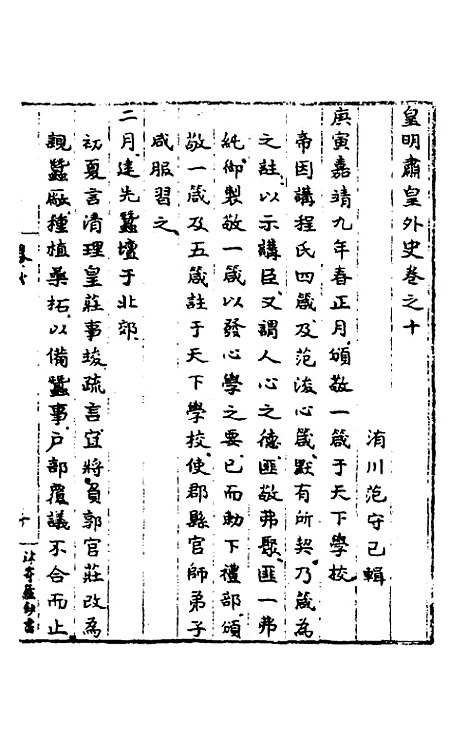 皇明肅皇外史卷之十
洧川范守己輯
庚寅嘉靖九年春正月頒敬一箴于天下學校
帝因講程氏四箴及范浚心箴默有所契乃箴為
之註以示講臣又謂人心之德匪敬弗聚匪一弗
純御製敬一箴以發心學之要已而勅下禮部頒
敬一箴及五箴註于天下學校使郡縣官師弟子
咸服習之
二月建先蠶壇于北郊
初夏言清理皇莊事竣疏言宜將負郭官莊改為
親蠶廠種植桑柘以備蠶事戶部覆議不合而止